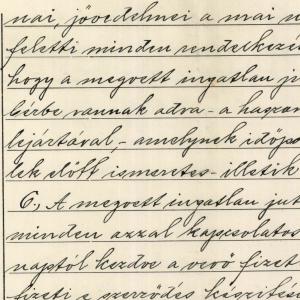 nai, jövedelmei a mai n
feletti minden rendelkezé
hogy a megvett ingatlan j
bérbe vannak adva - a haszon
lejártával, - amelynek időpo
lek előtt ismeretes - illetik
6., A megvett ingatlan jut
minden azzal kapcsolatos
naptól kezdve a vevő fizet
fizeti e szerződés készítés